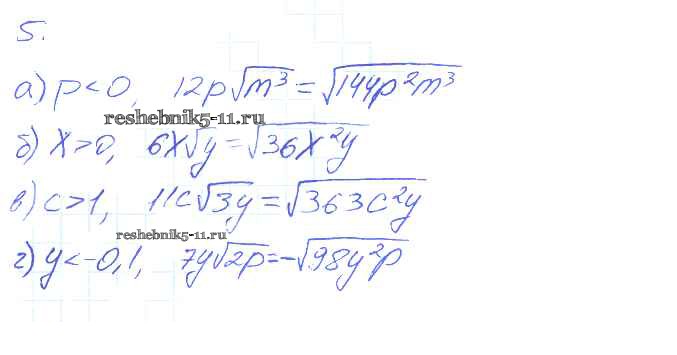 5.
а) p<0, 12p√m³=√144p²m³
reshebnik5-11.ru
б) x>0, 6x√y=√36x²y
в) c>1, 11c√3y=√363c²y
reshebnik5-11.ru
г) y<-0,1, 7y√2p=-√98y²p